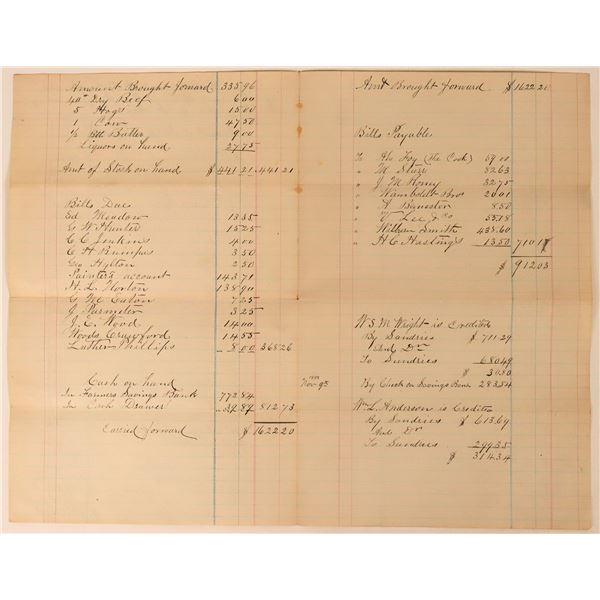 Amount Brought forward 335 96
40# Dry Beef 6 00
5 Hogs 15 00
1 Cow 47 50
1/2 Bbl Butter 9 00
Liquors on hand 27 75
Amt of Stock on hand $ 441 21 441 21
Bills Due
Ed Meadow 13 35
G W Hunter 15 25
C C Jenkins 4 00
C H Bumpus 3 50
Geo Hylton 2 50
Painters account 143 71
H. L. Horton 138 90
G Mc Eaton 7 25
J Parmeter 3 25
J. E. Wood 14 00
Woods Crawford 14 55
Luther Phillips 8 00 368 26
Cash on hand
In Farmers Savings Bank 772 84
In Cash Drawer 39 89 812 73
Carried forward $ 1622 20
Amt Brought forward $ 1622 20
Bills Payable
To Ho Foy (the Cook) 59 00
" M Sturz 82 63
" J M Horny 32 75
" Wamboldt Bros 20 01
" A Bynester 8 50
" W Lee & Co 55 18
" William Smith 438 60
" H C Hastings 13 50 710 17
$ 912 03
W S M Wright is Credited
By Sundries $ 711.29
And Dr
To Sundries 680 49
$ 30 80
Nov 9th By Check on Savings Bank 283 54
Wm L. Anderson is Credited
By Sundries $ 613 69
And Dr
To Sundries 299 35
$ 314 34